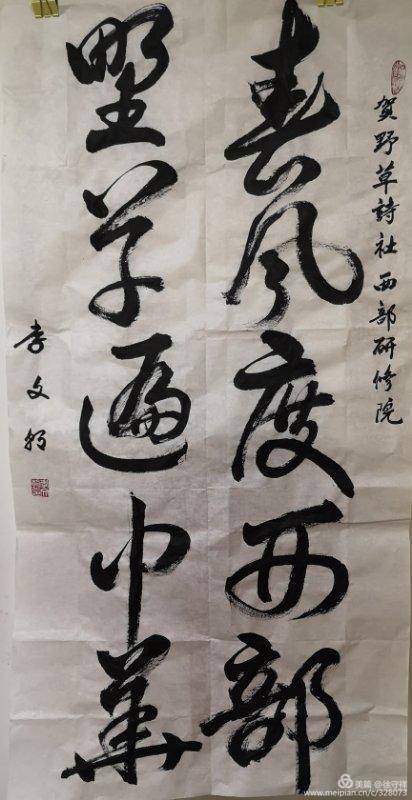 贺野草詩社西部研修院
春风度西部
野草遍中華
李文朝
美篇 @徐守祥
www.meipian.cn/c/328073